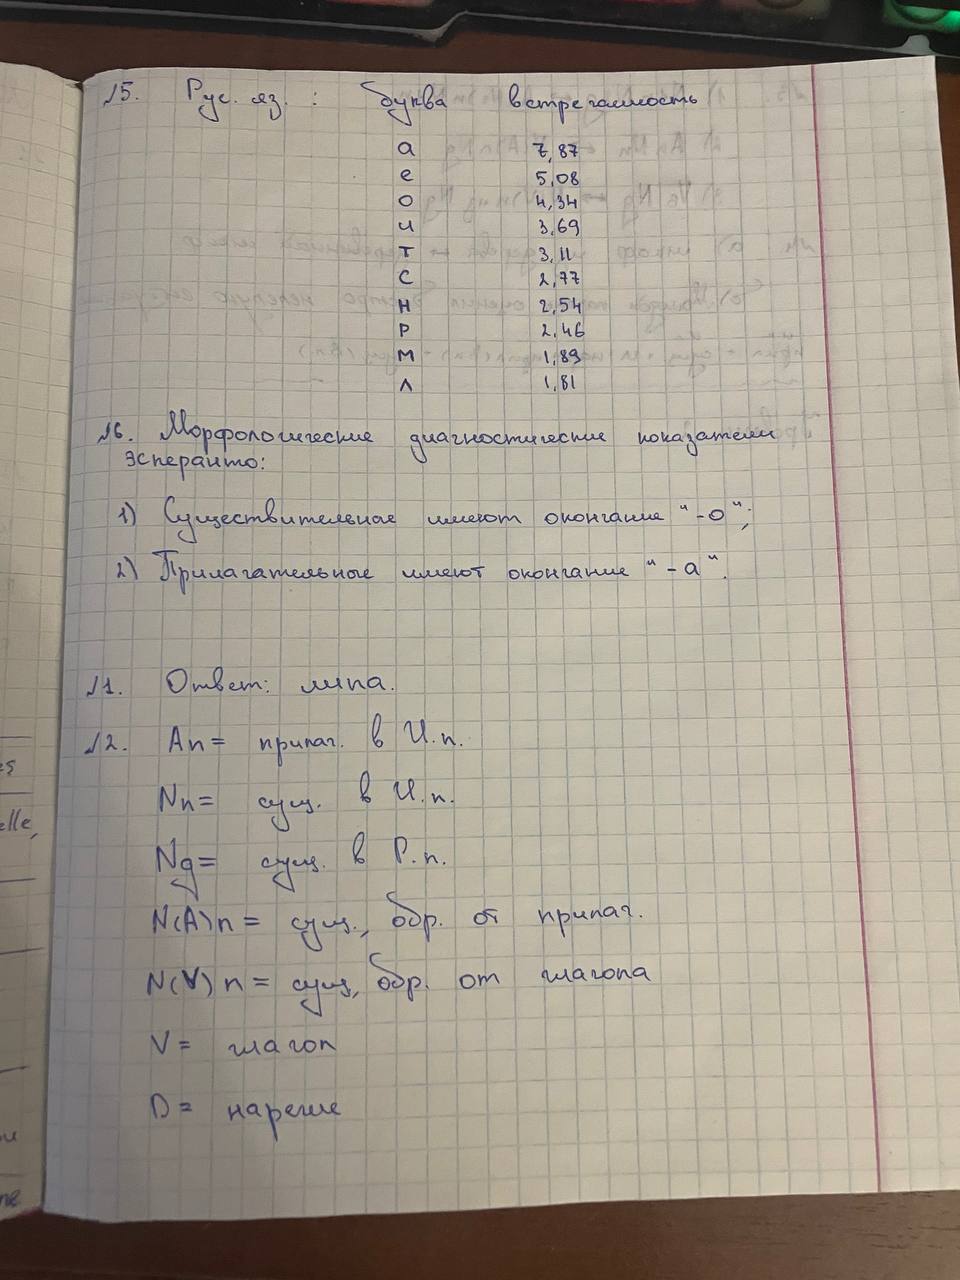 №5. Рус. яз. : буква встречаемость
а 7,87
е 5,08
о 4,34
и 3,69
т 3,11
с 2,77
н 2,54
р 2,46
м 1,89
л 1,81
№6. Морфологические диагностические показатели
эсперанто:
1) Существительные имеют окончание "-о";
2) Прилагательные имеют окончание "-а".
№1. Ответ: липа.
№2. An = прилаг. в И.п.
Nn = сущ. в И.п.
Ng = сущ. в Р.п.
N(A)n = сущ., обр. от прилаг.
N(V)n = сущ., обр. от глагола
V = глагол
D = наречие
elle,